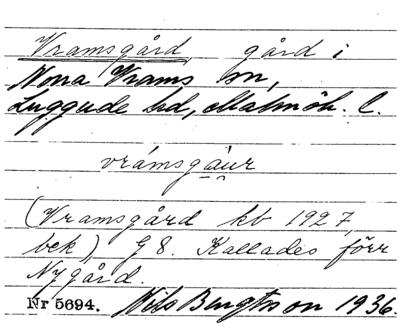 Vramsgård, gård i
Norra Vrams sn,
Luggude hd, Malmöh. l.
vrámsgàur
(Vramsgård kb 1927,
bek), G8. Kallades förr
Nygård.
Nr 5694. Nils Bengtsson 1936.